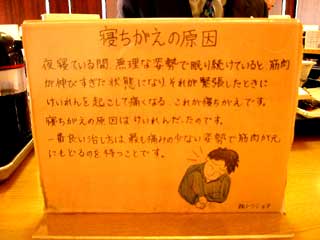 寝ちがえの原因
夜寝ている間、無理な姿勢で眠り続けていると、筋肉
が伸びすぎた状態になり、それが緊張したときに
けいれんを起こして痛くなる。これが寝ちがえです。
寝ちがえの原因はけいれんだったのです。
一番良い治し方は最も痛みの少ない姿勢で筋肉が元
にもどるのを待つことです。